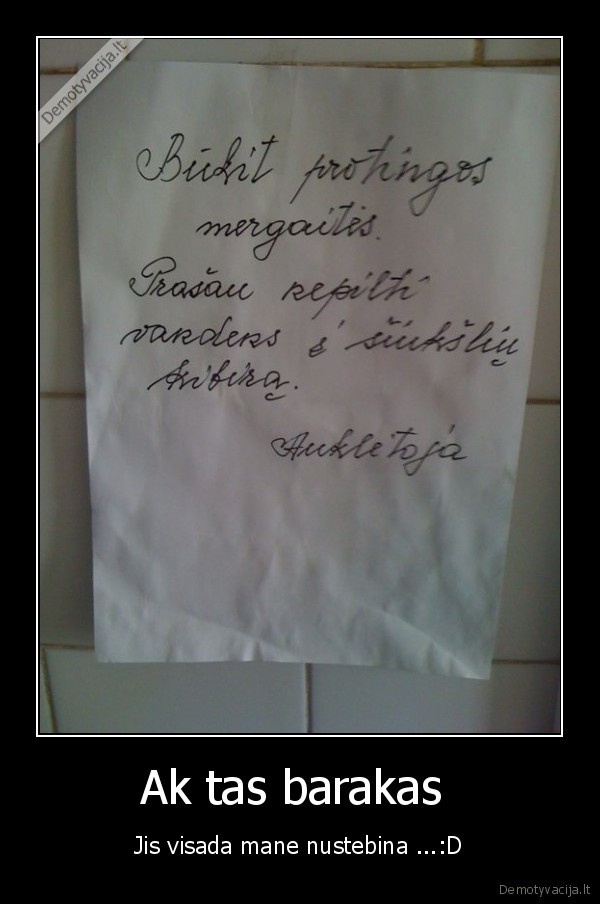 Demotyvacija.lt
Būkit protingos
mergaitės.
Prašau nepilti
vandens į šiukšlių
kibirą.
Auklėtoja
Ak tas barakas
Jis visada mane nustebina ...:D
Demotyvacija.lt